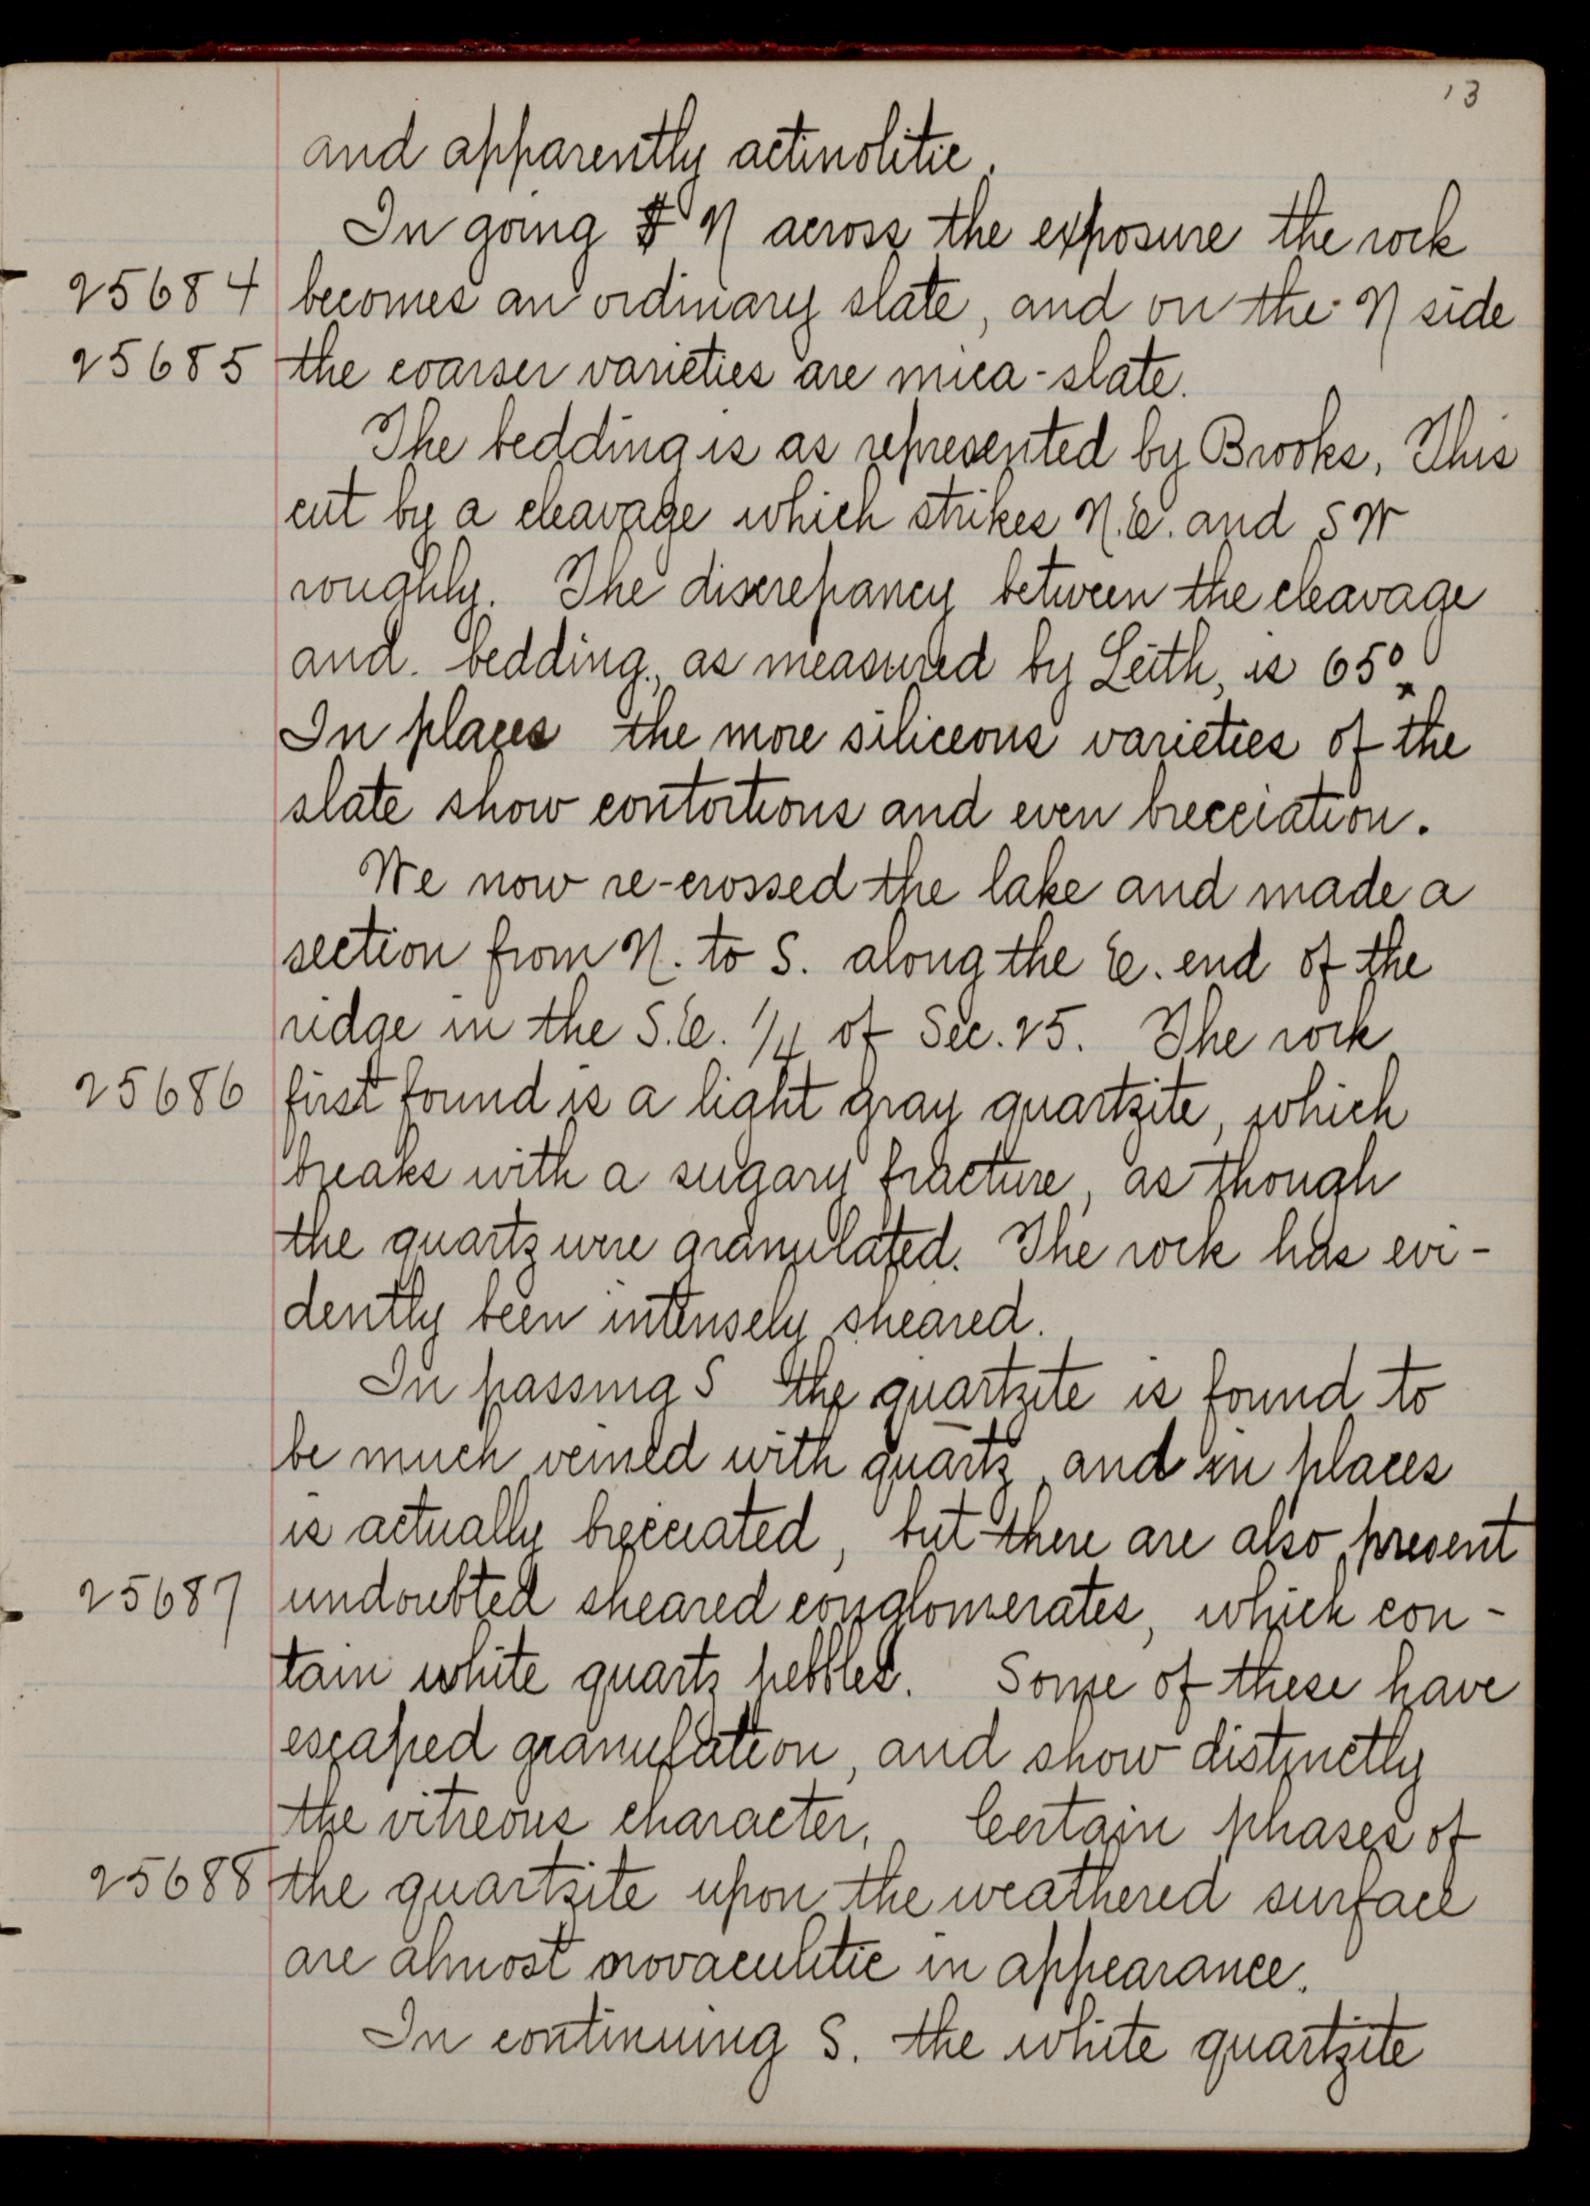 13
and apparently actinolitic.
In going N across the exposure the rock
25684 becomes an ordinary slate, and on the N side
25685 the coarser varieties are mica-slate.
The bedding is as represented by Brooks. This
cut by a cleavage which strikes N.E. and SW
roughly. The discrepancy between the cleavage
and bedding, as measured by Leith, is 65°.
In places the more siliceous varieties of the
slate show contortions and even brecciation.
We now re-crossed the lake and made a
section from N. to S. along the E. end of the
ridge in the S.E. 1/4 of Sec. 25. The rock
25686 first found is a light gray quartzite, which
breaks with a sugary fracture, as though
the quartz were granulated. The rock has evi-
dently been intensely sheared.
In passing S the quartzite is found to
be much veined with quartz, and in places
is actually brecciated, but there are also present
25687 undoubted sheared conglomerates, which con-
tain white quartz pebbles. Some of these have
escaped granulation, and show distinctly
the vitreous character. Certain phases of
25688 the quartzite upon the weathered surface
are almost novaculitic in appearance.
In continuing S. the white quartzite